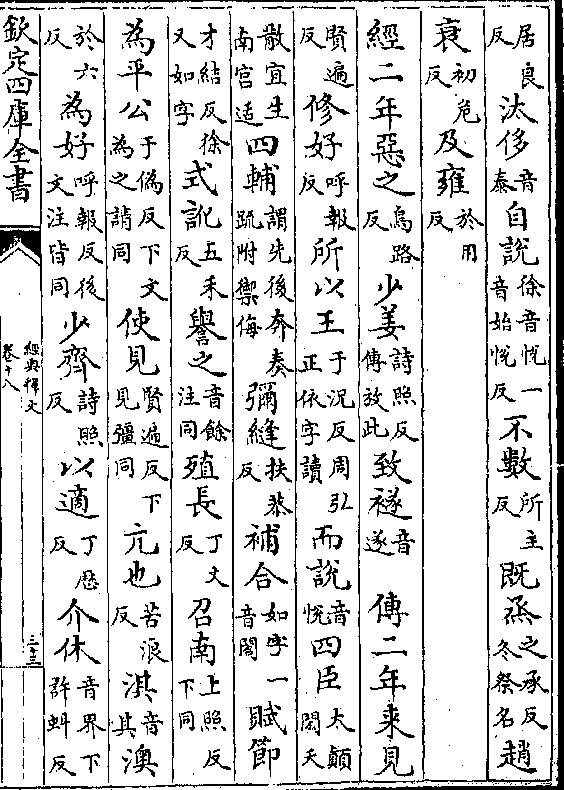 居良反汰侈音泰自說徐音悅一音始悅反不數所主反既烝之承反冬祭名趙
衰初危反及雍於用反
經二年惡之烏路反少姜詩照反傳放此致襚音遂　傳二年来見
賢遍反修好呼報反所以王于況反周弘正依字讀而說音悅四臣太顛閎夭
散宜生南宫适四輔謂先後奔奏疏附禦侮彌縫扶恭反補合如字一音閤賦節
才結反徐又如字式訛五禾反譽之音餘注同殖長丁丈反召南上照反下同
為平公于偽反下文為之請同使見賢遍反下見彊同亢也苦浪反淇音其澳
於六反為好呼報反後文注皆同少齊詩照反以適丁歷反介休音界下許虯反
欽定四庫全書
經典釋文
卷十八
三十三